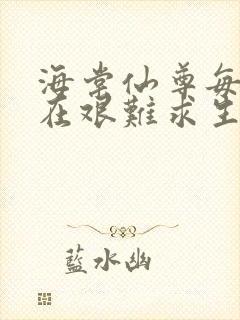 海棠仙尊每
在艰難求生
藍水幽